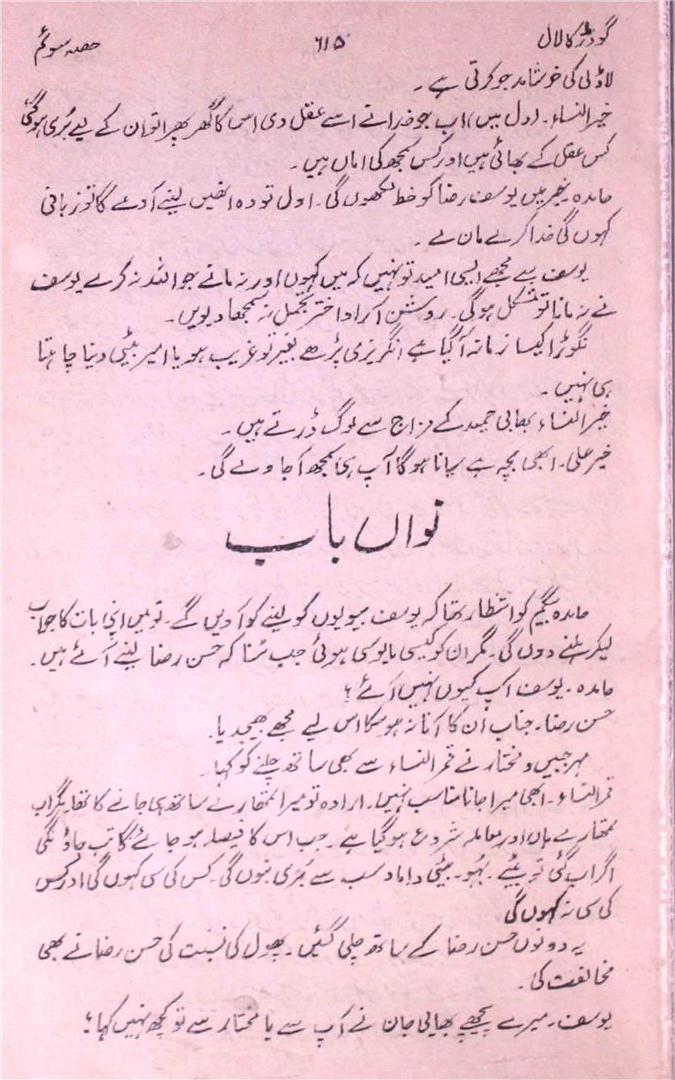 گودڑ کا لال ۶۱۵ حصہ سوئم
لاڈلی کی خوشامد جو کرتی ہے۔
خیر النساء۔ (دل میں) اب جو خدا نے اسے عقل دی اس کا گھر پھرا تو ان کے لیے بُری ہوگئی
کس عقل کے بھائی ہیں اور کس سمجھ کی اماں ہیں۔
حامدہ۔ خیر میں یوسف رضا کو خط لکھوں گی۔ اول تو وہ انھیں لینے آوے گا تو زبانی
کہوں گی خدا کرے مان لے۔
یوسف سے مجھے ایسی امید تو نہیں کہ میں کہوں اور نہ مانے جو اللہ نہ کرے یوسف
نے نہ مانا تو مشکل ہوگی۔ روشن آرا و اختر تجمل نہ سمجھا دیویں۔
نگوڑا کیسا زمانہ آگیا ہے انگریزی پڑھے بغیر تو غریب ہو یا امیر بیٹی دینا چاہتا
ہی نہیں۔
خیر النساء۔ بھابی حمید کے مزاج سے لوگ ڈرتے ہیں۔
خیر علی۔ ابھی بچہ ہے سیانا ہوگا آپ ہی سمجھ آجاوے گی۔
نواں باب
حامدہ بیگم کو انتظار تھا کہ یوسف بیویوں کو لینے کو آویں گے۔ تو میں اپنی بات کا جواب
لیکر ہلنے دوں گی۔ مگر ان کو کیسی مایوسی ہوئی جب سُنا کہ حسن رضا لینے آئے ہیں۔
حامدہ۔ یوسف آپ کیوں نہیں آئے؟
حسن رضا۔ جناب اُن کا آنا نہ ہوسکا اس لیے مجھے بھیجدیا۔
مہر جبیں و مختار نے قمر النساء سے بھی ساتھ چلنے کو کہا۔
قمر النساء۔ ابھی میرا جانا مناسب نہیں۔ ارادہ تو میرا تمھارے ساتھ ہی جانے کا تھا مگر اب
تمھارے ہاں اور معاملہ شروع ہوگیا ہے۔ جب اس کا فیصلہ ہو جائے گا تب جاؤنگی
اگر اب گئی تو بیٹے۔ بہُو۔ بیٹی داماد سب سے بُری بنوں گی۔ کس کی سی کہوں گی اور کس
کی سی نہ کہوں گی
یہ دونوں حسن رضا کے ساتھ چلی گئیں۔ پھول کی نسبت کی حسن رضا نے بھی
مخالفت کی۔
یوسف۔ میرے پیچھے بھائی جان نے آپ سے یا مختار سے تو کچھ نہیں کہا؟